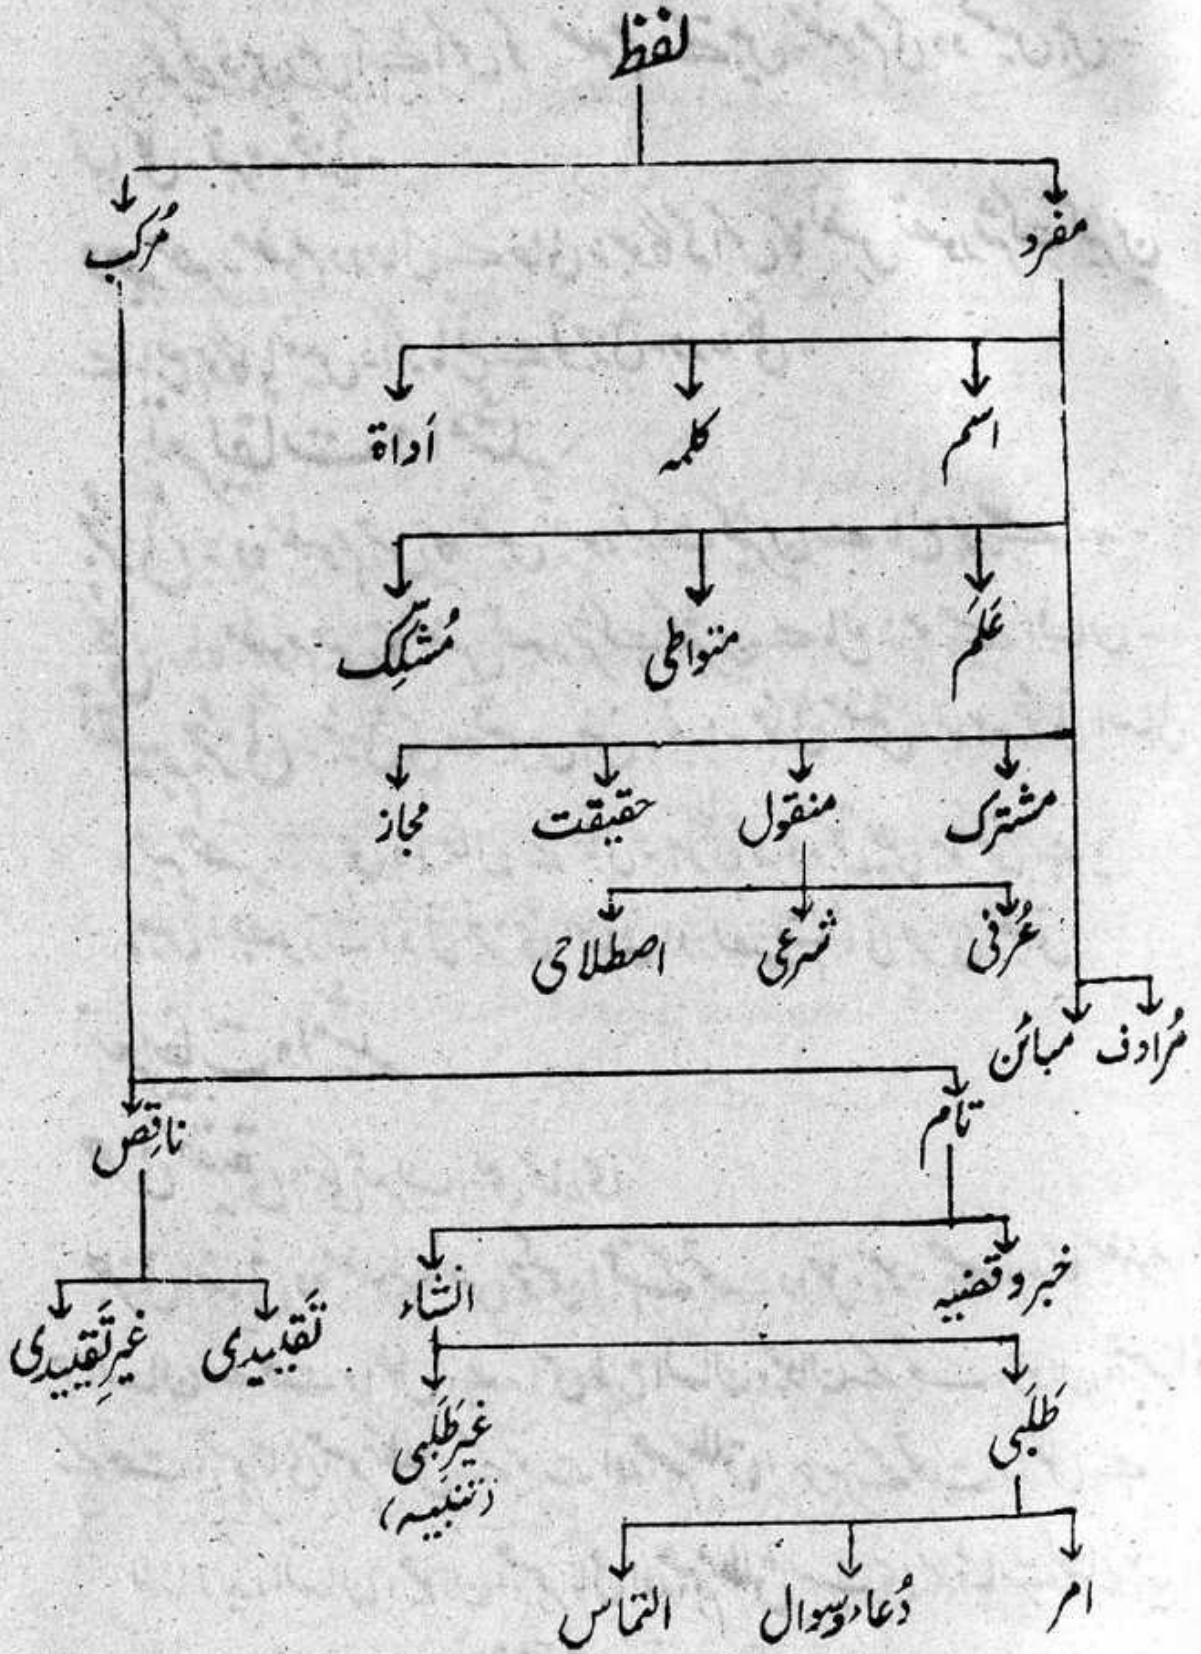 لفظ
مفرد مُرکب
اسم کلمہ اَداة
عَلَم متواطی مُشکِّک
مشترک منقول حقیقت مجاز
عُرفی شرعی اصطلاحی
مُرادف مبائن
تام ناقِص
خبر و قضیہ انشاء تَقییدی غیرِ تَقییدی
طَلَبی غیر طَلَبی
(تنبیہ)
امر دُعاء و سوال التماس